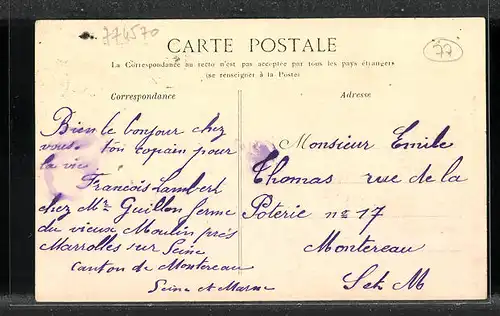 774570
77
CARTE POSTALE
La Correspondance au recto n'est pas acceptée par tous les pays étrangers
(se renseigner à la Poste)
Correspondance
Bien le bonjour chez
vous. ton copain pour
la vie
François Lambert
chez Mr Guillon ferme
du vieux Moulin près
Marrolles sur Seine
Canton de Montereau
Seine et Marne
Adresse
Monsieur Emile
Thomas rue de la
Poterie no 17
Montereau
S et M